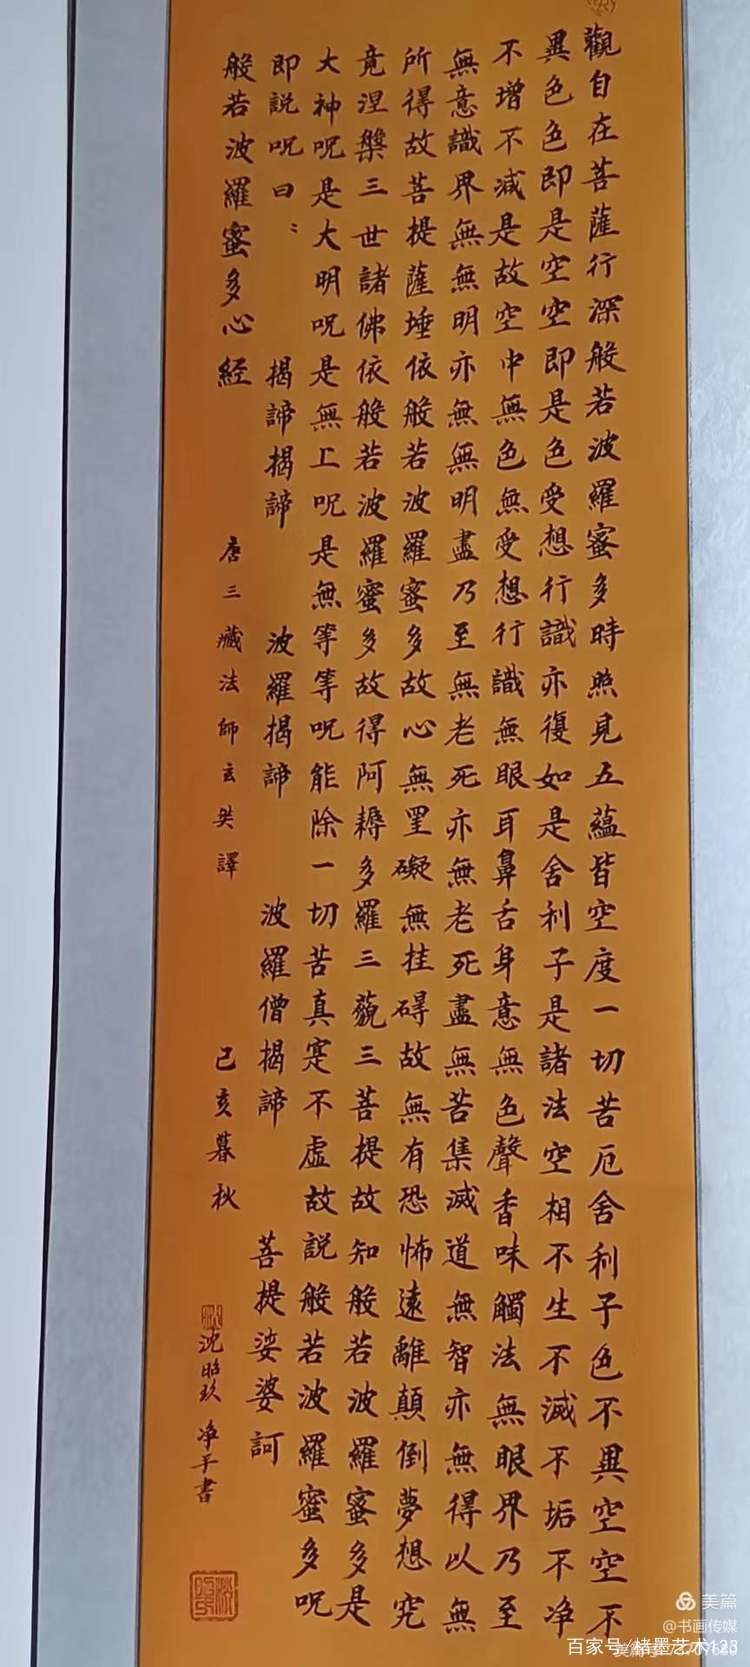 觀自在菩薩行深般若波羅蜜多時照見五蘊皆空度一切苦厄舍利子色不異空空不
異色色即是空空即是色受想行識亦復如是舍利子是諸法空相不生不滅不垢不净
不增不減是故空中無色無受想行識無眼耳鼻舌身意無色聲香味觸法無眼界乃至
無意識界無無明亦無無明盡乃至無老死亦無老死盡無苦集滅道無智亦無得以無
所得故菩提薩埵依般若波羅蜜多故心無罣礙無挂碍故無有恐怖遠離顛倒夢想究
竟涅槃三世諸佛依般若波羅蜜多故得阿耨多羅三藐三菩提故知般若波羅蜜多是
大神呪是大明呪是無上呪是無等等呪能除一切苦真寔不虛故說般若波羅蜜多呪
即說呪曰： 揭諦揭諦 波羅揭諦 波羅僧揭諦 菩提娑婆訶
般若波羅蜜多心經 唐三藏法師玄奘譯 己亥暮秋
沈昭玖净手書
美篇
@书画传媒
百家号/楮墨艺术123